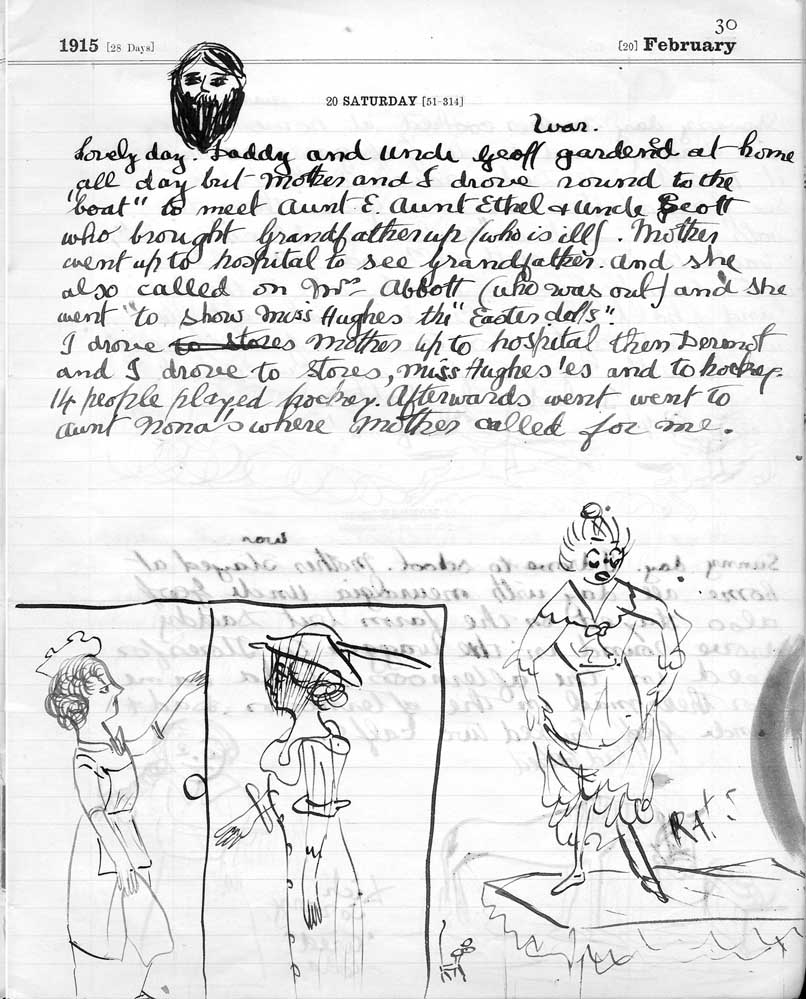 30
1915 [28 Days] [20] February
20 SATURDAY [51-314]
War.
Lovely day. Daddy and Uncle Geoff gardened at home
all day but Mother and I drove round to the
"boat" to meet Aunt E. Aunt Ethel & Uncle Scott
who brought Grandfather up (who is ill). Mother
went up to hospital to see grandfather. and she
also called on Mrs Abbott (who was out) and she
went "to show Miss Hughes the "Easter dolls".
I drove to stores Mother up to hospital then Dermot
and I drove to stores, Miss Hughes'es and to hockey.
14 people played hockey. Afterwards went went to
Aunt Nona's where Mother called for me.
RATS